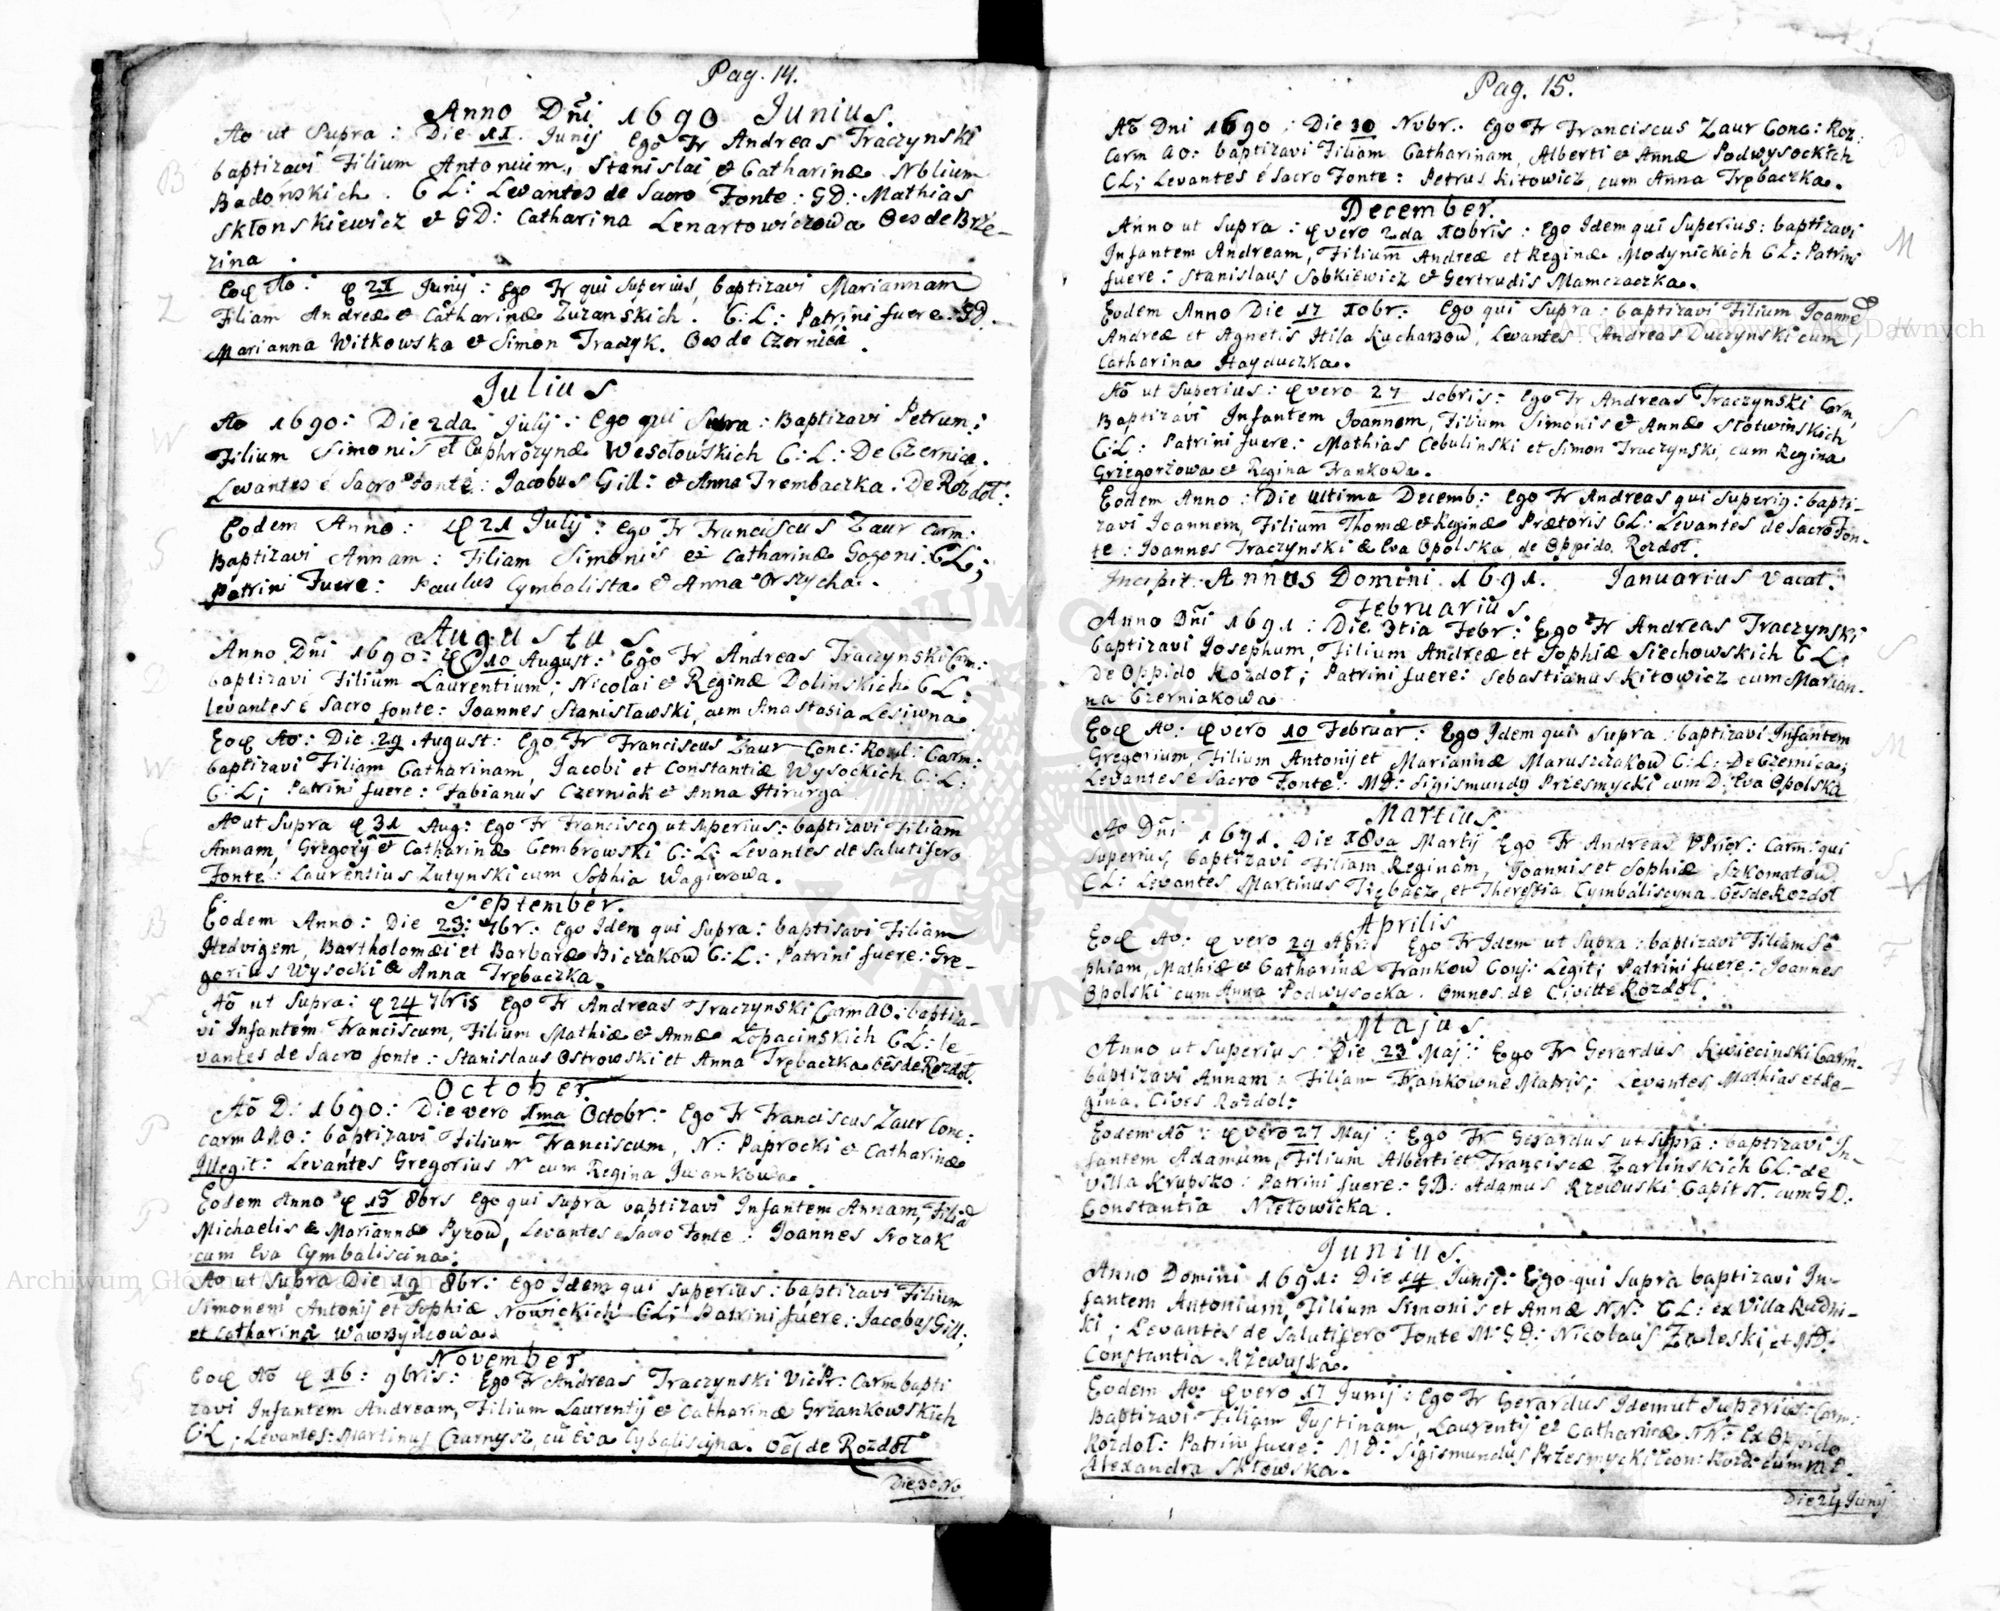 Pag. 14.
Anno Dñi 1690 Junius.
Ao ut Supra: Die 11. Junij Ego Fr Andreas Traczynski
baptizavi Filium Antonium, Stanislai & Catharinæ Nblium
Badońskich. C L: Levantes de Sacro Fonte: GD: Mathias
Skłonskiewicz & GD: Catharina Lenartowiczowa Oes de Brze-
zina.
B
Eoq Ao: 21 Junij: Ego Fr qui Superius, baptizavi Mariannam
Filiam Andreæ & Catharinæ Zuzanskich. C: L: Patrini fuere: GD.
Marianna Witkowska & Simon Traczyk. Oes de Czernica.
Z
Julius
Ao 1690: Die 2da Julij: Ego qui Supra: Baptizavi Petrum:
Filium Simonis et Euphrozynæ Wesołowskich C: L: De Czernica.
Levantes è Sacro Fonte: Jacobus Gill: & Anna Trembaczka: De Rozdoł:
W
Eodem Anno: 21 Julij: Ego Fr Franciscus Zaur Carm:
Baptizavi Annam: Filiam Simonis et Catharinæ Gogoni: CL;
Patrini Fuere: Paulus Cymbalista & Anna Orszycha.
S
Augustus
Anno Dñi 1690: 10 August: Ego Fr Andreas Traczynski Carm:
baptizavi Filium Laurentium; Nicolai & Reginæ Dolinskich CL:
levantes è Sacro fonte: Joannes Stanisławski, cum Anastasia Lesiwna
D
Eoq Ao: Die 29 August: Ego Fr Franciscus Zaur Conc: Carm:
baptizavi Filiam Catharinam, Jacobi et Constantiæ Wysockich C: L:
C: L; Patrini fuere: Fabianus Czerniak & Anna Hirurga
W
Ao ut Supra 31 Aug: Ego Fr ut Superius: baptizavi Filiam
Annam, Gregorij & Catharinæ Cembrowski C: L: Levantes de Salutifero
Fonte: Laurentius Zutynski cum Sophia Wagierowa.
September.
Eodem Anno: Die 23: 7br: Ego Idem qui Supra: baptisavi Filiam
Hedvigem, Bartholomæi et Barbaræ Biczakow C: L.: Patrini fuere: Gre-
gorius Wysocki & Anna Trębaczka.
B
Aõ ut Supra: 24 7bris Ego Fr Andreas Traczynski Carm AO: baptiza-
vi Infantem Franciscum, Filium Mathiæ & Annæ Łopacinskich CL: le-
vantes de Sacro fonte: Stanislaus Ostrowski et Anna Trębaczka Oes de Rozdoł.
Ł
October.
Aõ D: 1690: Die vero 1ma Octobr: Ego Fr Franciscus Zaur Conc:
Carm ARO: baptizavi Filium Franciscum, N: Paprocki & Catharinæ
Illegit: Levantes Gregorius N cum Regina Iwankowa.
P
Eodem Anno 15 8brs Ego qui Supra baptizavi Infantem Annam,
Michaelis & Mariannæ Pyzow, Levantes è Sacro Fonte: Joannes
cum Eva Cymbaliscina:
P
Ao ut Supra Die 19 8br: Ego Idem qui Superius: baptizavi Filium
Simonem Antonij et Sophiæ Nowickich CL; Patrini fuere: Jacobus Gill:
et Catharina Wawrzyncowa.
November
Eoq Aõ 16: 9bris: Ego Fr Andreas Traczynski Vic Pr: Carm bapti
zavi Infantem Andream, Filium Laurentij & Catharinæ Grzankowskich
CL; Levantes: Martinus Czarnysz, cũ Eva Cybaliscyna. Oes de Rozdoł
Die 30 No
Pag. 15.
Aõ Dni 1690: Die 30 Nvbr. Ego Fr Franciscus Zaur Conc: Roz:
Carm AO: baptizavi Filiam Catharinam, Alberti & Annæ Podwysockich
CL; Levantes è Sacro Fonte: Petrus Kitowicz, cum Anna Trębaczka.
P
December.
Anno ut Supra: vero 2da Xobris: Ego Idem qui Superius: baptizavi
Infantem Andream, Filium Andreæ et Reginæ Modynickich CL: Patrini
fuere: Stanislaus Sobkiewicz & Gertrudis Mamczaczka.
M
Eodem Anno Die 17 Xobr: Ego qui Supra: baptizavi Filium Joanne
Andreæ et Agnetis Hila Kucharzow, Levantes: Andreas Duczynski cum,
Catharina Hayduczka.
Aõ ut Superius: vero 27 Xobris: Ego Fr Andreas Traczynski Carm,
Baptizavi Infantem Joannem, Filium Simonis & Annæ Słotwinskich
C: L: Patrini fuere: Mathias Cebulinski et Simon Traczynski, cum Regina
Grzegorzowa & Regina Frankowa.
S
Eodem Anno: Die ultima Decemb: Ego Fr Andreas qui Superig: bapti-
zavi Joannem, Filium Thomæ & Reginæ Prætoris CL: Levantes de Sacro Fon-
te: Joannes Traczynski & Eva Opolska, de Oppido Rozdoł.
Incipit Annus Domini 1691. Januarius vacat.
Februarius
Anno Dñi 1691: Die 3tia Febr: Ego Fr Andreas Traczynski
baptizavi Josephum, Filium Andreæ et Sophiæ Siechowskich CL:
De Oppido Rozdoł; Patrini fuere: Sebastianus Kitowicz cum Marian-
na Czerniakowa
S
Eoq Ao: vero 10 Februar: Ego Idem qui Supra: baptizavi Infantem
Gregorium, Filium Antonij et Mariannæ Maruszczakow C: L: De Czernica;
Levantes è Sacro Fonte: MD: Sigismundg Przesmycki cum D: Eva Opolska
M
Martius.
Ao Dñi 1691. Die 18va Martij Ego Fr Andreas Prior: Carm: qui
Superius, baptizavi Filiam Reginam, Joannis et Sophiæ Szkomatow
CL: Levantes Martinus Trębacz, et Theressia Cymbaliscyna Oes de Rozdoł
S
Aprilis
Eoq Ao: vero 29 Apr: Ego Fr Idem ut Supra: baptizavi Filiam So-
phiam, Mathiæ & Catharinæ Frankow Conj: Legit; Patrini fuere: Joannes
Opolski cum Anna Podwysocka. Omnes de Civitte Rozdoł.
F
Majus
Anno ut Superius: Die 23 Maj: Ego Fr Gerardus Kwiecinski Carm.
baptizavi Annam: Filiam Frankowne Matris; Levantes, Mathias et Re-
gina. Cives Rozdol:
F
Eodem Aõ: vero 27 Maj: Ego Fr Gerardus ut Supra: baptizavi In-
fantem Adamum, Filium Alberti et Franciscæ Zarlinskich CL: de
Villa Krupsko: Patrini fuere: GD: Adamus Rzewuski Capit N. cum GD:
Constantia Niełowicka.
Z
Junius.
Anno Domini 1691: Die 14 Junij: Ego qui Supra baptizavi In-
fantem Antonium, Filium Simonis et Annæ NN: CL: ex Villa Rudni-
ki; Levantes de Salutifero Fonte M: GD: Nicolaus Zaleski, et MD:
Constantia Rzewuska.
Eodem Ao: vero 17 Junij: Ego Fr Gerardus Idem ut Superius: Carm:
Baptizavi Filiam Justinam, Laurentij & Catharinæ NN: Ex Oppido
Rozdoł: Patrini fuere: MD: Sigismundus Przesmycki cum
Alexandra Skłowska.
Die 24 Junij
Archiwum Główne Akt Dawnych